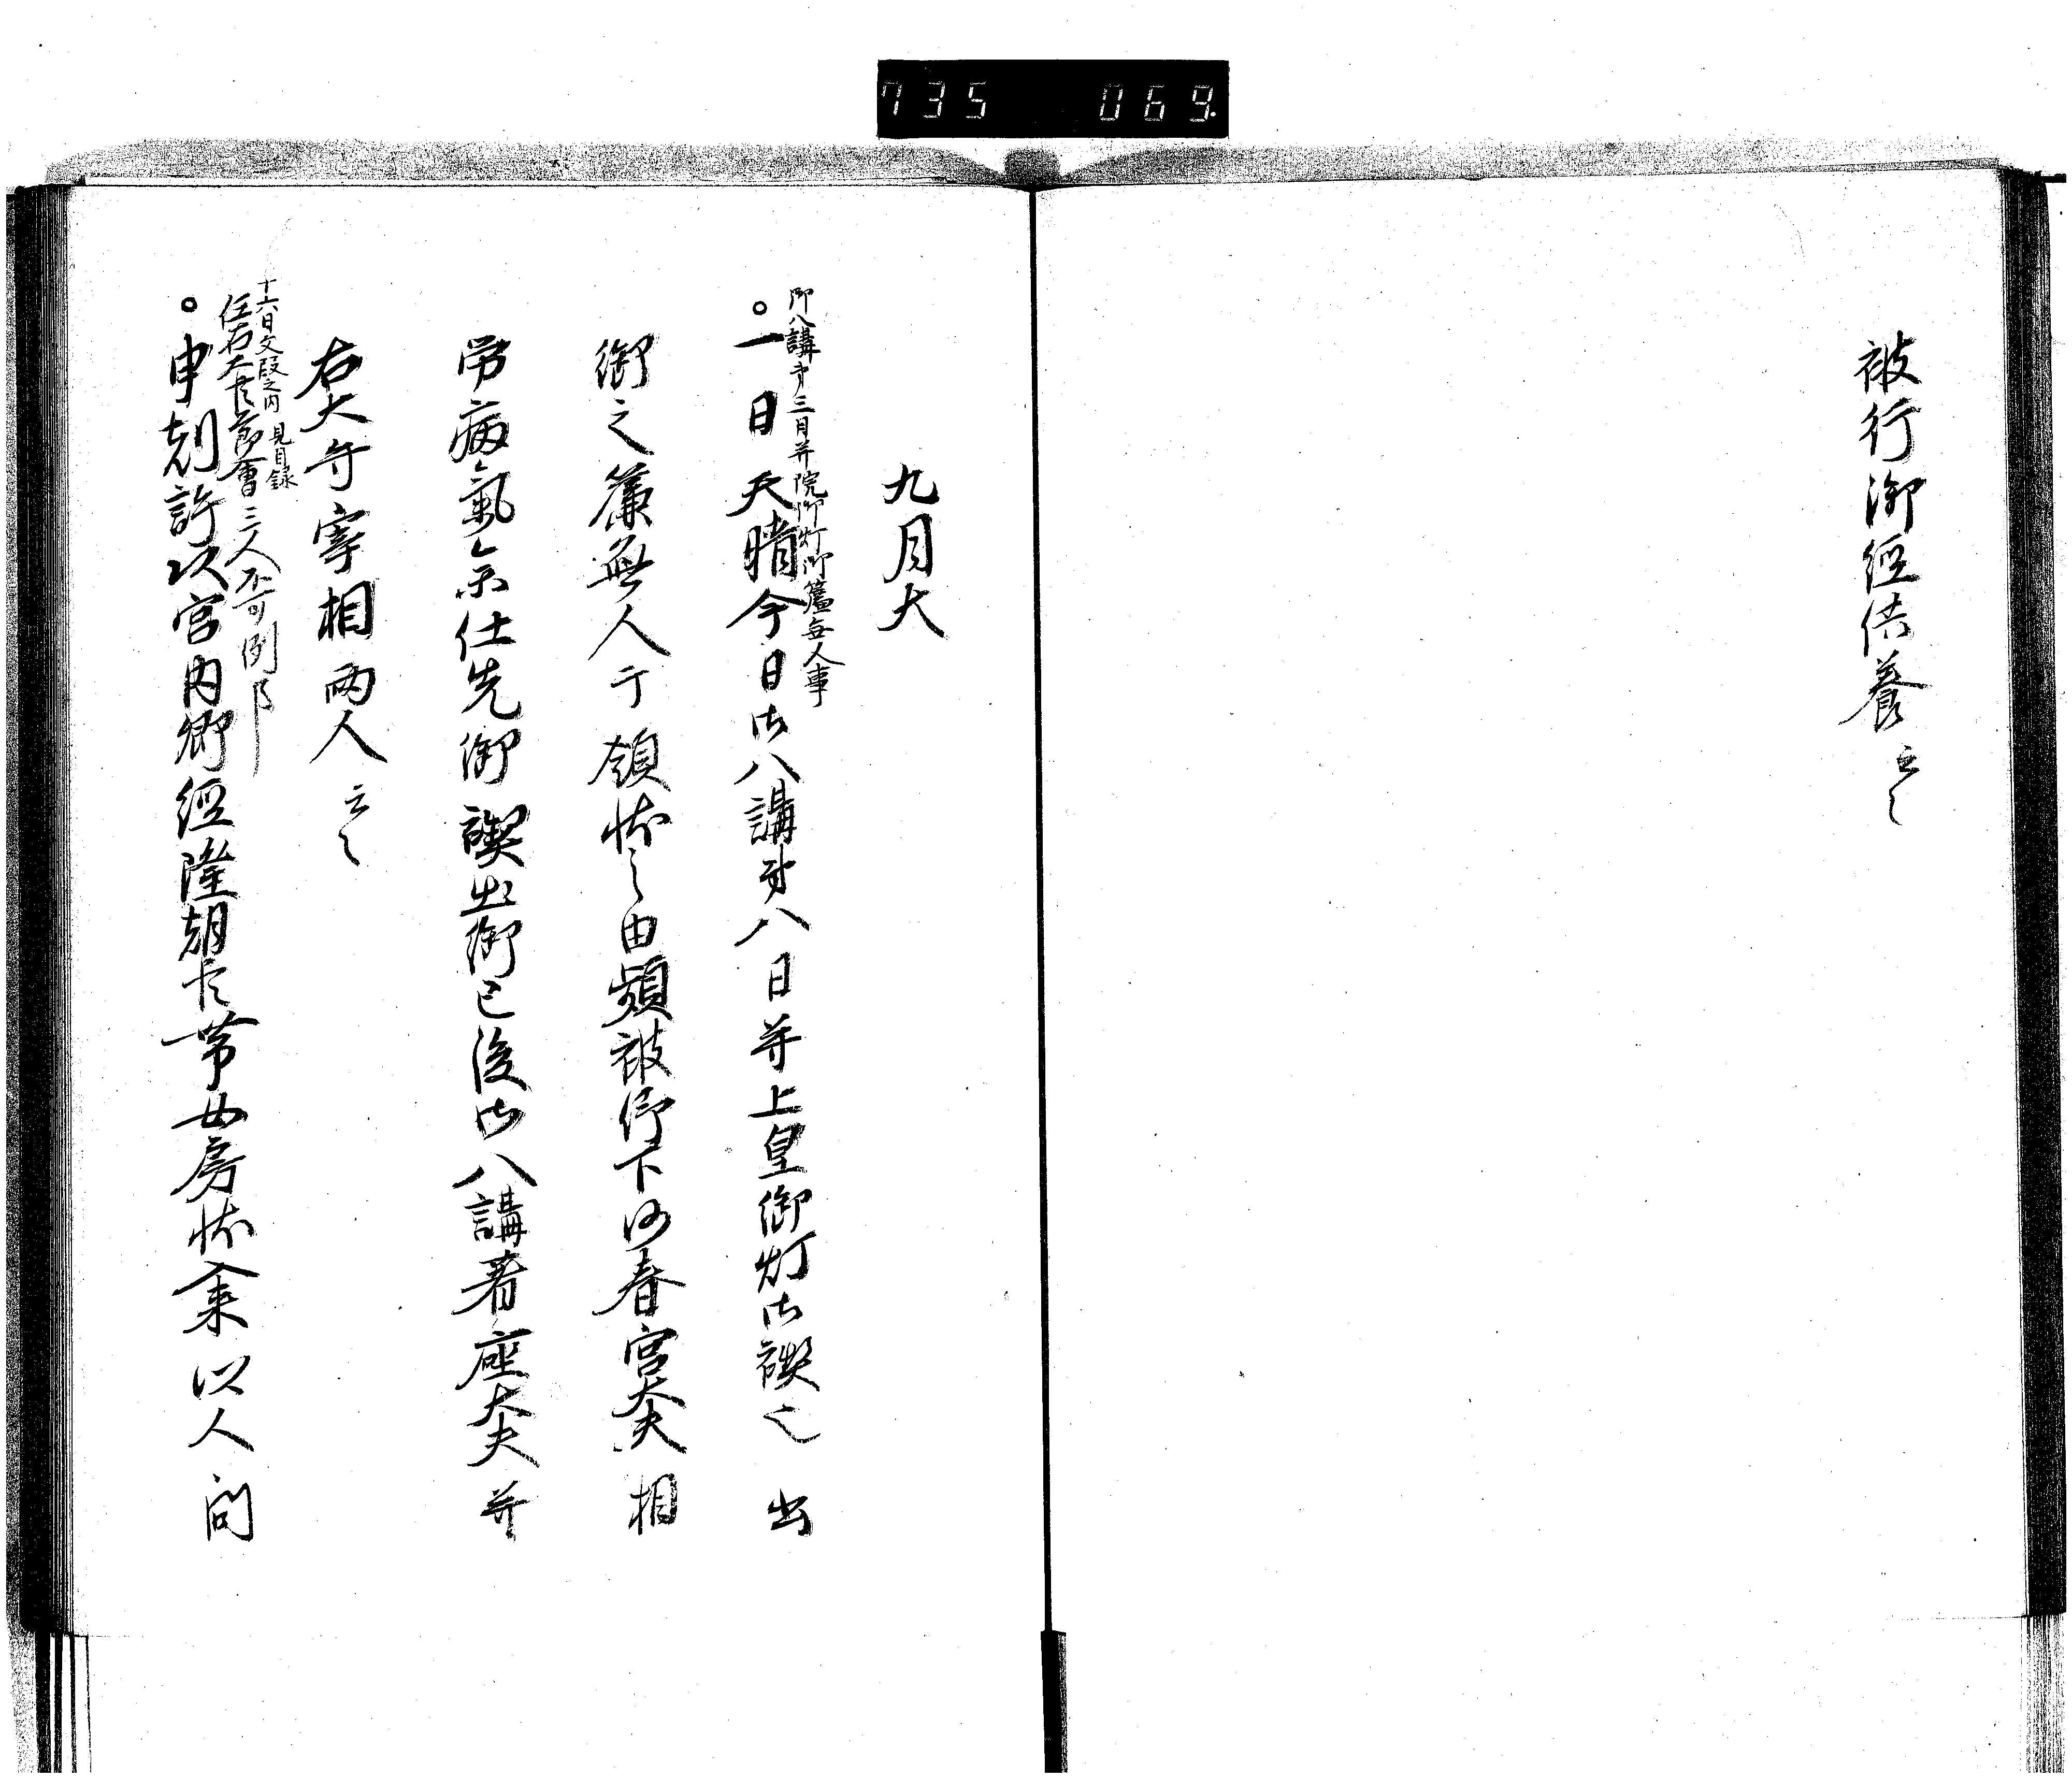 735 069
被行御経供養云々
九月大
御八講第三月并院御灯御簾毎人事
一日天晴今日御八講第八日并上皇御灯御禊也出
御之簾無人于領状之由頻被仰下仍春宮大夫相
労病気参仕先御禊出御已後御八講着座大夫并
右大弁宰相両人云々
十六日文段之内見目録
任右大臣節会三人不可例
申剋許以宮内卿経隆朝臣兼女房状入来以人問